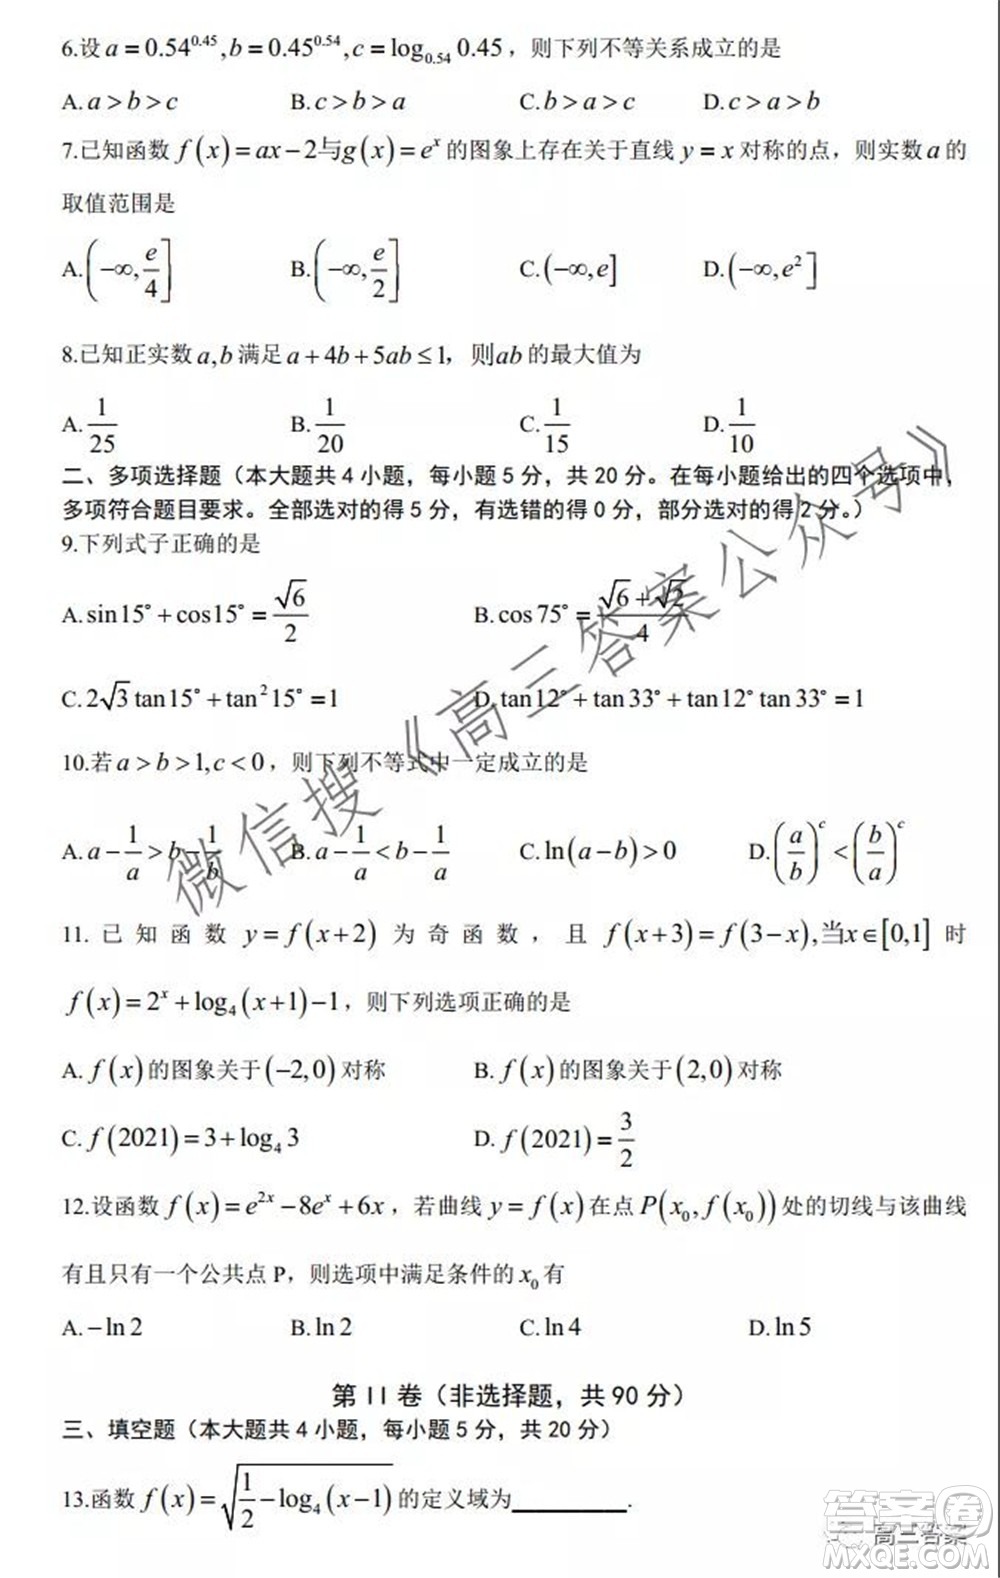 6.设 a = 0.54^{0.45}, b = 0.45^{0.54}, c = log_{0.54} 0.45，则下列不等关系成立的是
A. a > b > c B. c > b > a C. b > a > c D. c > a > b
7.已知函数 f(x) = ax − 2与g(x) = e^x 的图象上存在关于直线 y = x 对称的点，则实数 a 的
取值范围是
A. (−∞, e/4] B. (−∞, e/2] C. (−∞, e] D. (−∞, e^2]
8.已知正实数 a, b 满足 a + 4b + 5ab ≤ 1，则 ab 的最大值为
A. 1/25 B. 1/20 C. 1/15 D. 1/10
二、多项选择题（本大题共 4 小题，每小题 5 分，共 20 分。在每小题给出的四个选项中，
多项符合题目要求。全部选对的得 5 分，有选错的得 0 分，部分选对的得 2 分。）
9.下列式子正确的是
A. sin15° + cos15° = √6/2 B. cos75° = (√6 + √2)/4
C. 2√3 tan15° + tan²15° = 1 D. tan12° + tan33° + tan12° tan33° = 1
10.若 a > b > 1, c < 0，则下列不等式中一定成立的是
A. a − 1/a > b − 1/b B. a − 1/a < b − 1/a C. ln(a − b) > 0 D. (a/b)^c < (b/a)^c
11. 已知函数 y = f(x + 2) 为奇函数，且 f(x + 3) = f(3 − x), 当x ∈ [0,1] 时
f(x) = 2^x + log_4(x + 1) − 1，则下列选项正确的是
A. f(x) 的图象关于 (−2,0) 对称 B. f(x) 的图象关于 (2,0) 对称
C. f(2021) = 3 + log_4 3 D. f(2021) = 3/2
12.设函数 f(x) = e^{2x} − 8e^x + 6x，若曲线 y = f(x) 在点 P(x_0, f(x_0)) 处的切线与该曲线
有且只有一个公共点 P，则选项中满足条件的 x_0 有
A. −ln2 B. ln2 C. ln4 D. ln5
第 II 卷（非选择题，共 90 分）
三、填空题（本大题共 4 小题，每小题 5 分，共 20 分）
13.函数 f(x) = √(1/2 − log_4(x − 1)) 的定义域为__________.
微信搜《高三答案公众号》
答案圈
高三答案
MXQE.COM